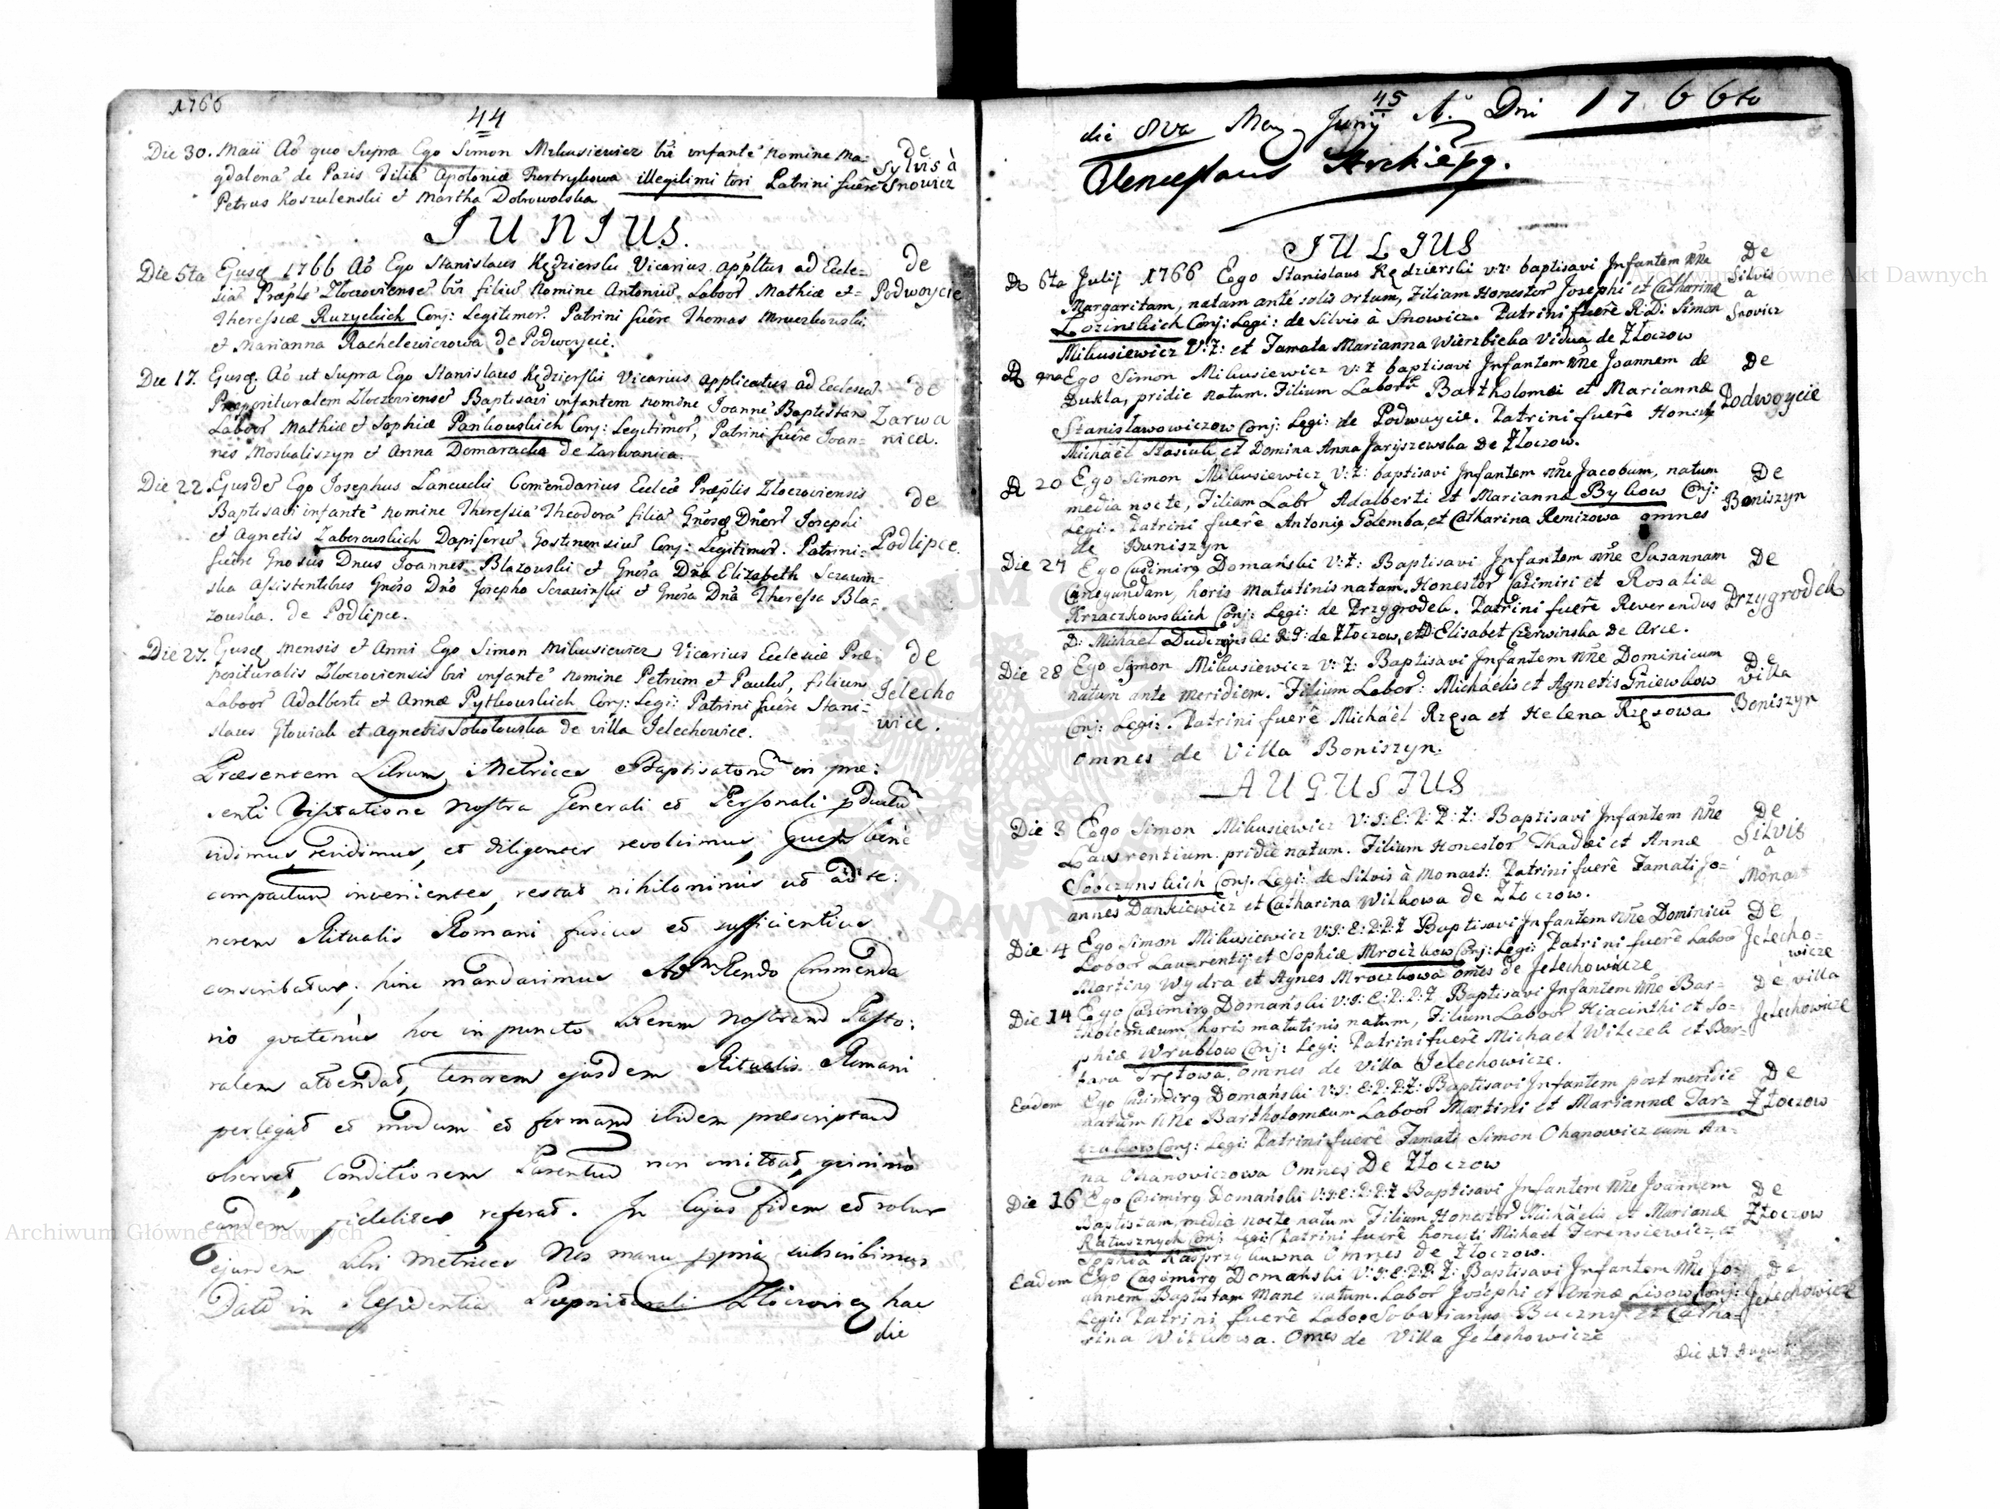 1766
44
Die 30. Maii Aõ quo Supra Ego Simon Mikusiewicz bũ infantẽ nomine Ma-
gdalenã de Pazis filiã Apoloniæ illegitimi tori Patrini fuêre
Petrus Koszulenski et Martha Dobrowolska
de
Sylvis à
Snowicz
JUNIUS.
Die 5ta Ejusq 1766 Aõ Ego Stanislaus Kędzierski Vicarius appltus ad Eccle=
siã Præplẽ Złoczoviensẽ bũ filiũ nomine Antoniũ. Laboor Mathiæ et
Theressiæ Ruzyckich Conj: Legitimor. Patrini fuêre Thomas Mruczkowski
et Marianna Rachelewiczowa de Podwoycie.
de
Podwoycie
Die 17. Ejusq. Aõ ut Supra Ego Stanislaus Kędzierski Vicarius applicatus ad Ecclesiã
Præposituralem Złoczoviensẽ Baptisavi infantem nomine Joannẽ Baptistam
Laboor Mathiæ et Sophiæ Pankowskich Conj: Legitimor, Patrini fuêre Joan-
nes Moskaliszyn et Anna Domaracka de Zarwanica.
de
Zarwa
nica.
Die 22 Ejusdẽ Ego Josephus Lancucki Comendarius Eccliæ Præplis Złoczoviensis
Baptisavi infantẽ nomine Theressiã Theodorã filiã Gnosoꝝ Dnoꝝ Josephi
et Agnetis Zaborowskich Dapiferoꝝ Gostinensiũ Conj: Legitimor. Patrini
fuêre Gnosus Dnus Joannes Blazowski et Gnosa Dna Elizabeth Scrawin-
ska Assistentibus Gnoso Dno Josepho Scrawinski et Gnosa Dna Theressa Bla-
zowska. de Podlipce.
de
Podlipce.
Die 27. Ejusq mensis et Anni Ego Simon Mikusiewicz Vicarius Ecclesiæ Præ-
posituralis Złoczoviensis bũi infantẽ nomine Petrum et Paulũ, filium
Laboor Adalberti et Annæ Pytkowskich Conj: Legi: Patrini fuêre Stani-
slaus Głowiak et Agnetis Sokołowska de villa Jelechowice.
de
Jelecho
wice.
Præsentem Librum Metrices Baptisatorũ in præ:
senti Visitatione Nostra Generali et Personali pductũ
vidimus, vendimus, et diligenter revolvimus, quem benè
compactum invenientes, restat nihilominus ut ad te:
norem Ritualis Romani fusius et sufficientius
conscribatur; hinc mandavimus Adm Rendo Commenda
rio quatenus hoc in puncto literam Nostram Pasto:
ralem attendat, tenorem ejusdem Ritualis Romani
perlegat et modum et formam ibidem præscriptam
observet, Conditionem Parentum non omittat, quinimò
eandem fideliter referat. In Cujus fidem et robur
ejusdem Libri Metrices Nos manu ppria subscribimus
Datũ in Residentia Præpositurali Złoczowien hac
die
45
die 8va Mey Junij Aº Dni 1766to
Wenceslaus Archiepp.
JULIUS
D 6ta Julij 1766 Ego Stanislaus Kędzierski V:Z: baptisavi Infantem nñe
Margaritam, natam antè solis ortum, Filiam Honestor Josephi et Catharinæ
Łozinskich Conj: Legi: de Silvis à Snowicz. Patrini fuerê R:D: Simon
Mikusiewicz V:Z: et Famata Marianna Wierzbicka Vidua de Złoczow
De
Silvis
a
Snovicz
D 9na Ego Simon Mikusiewicz V:Z baptisavi Infantem nñe Joannem de
Dukla, pridie natum. Filium Labor Bartholomæi et Mariannæ
Stanisławowiczow Conj: Legi: de Podwuycie. Patrini fuerê Honest
Michaël Stasiuk et Domina Anna Jaryszewska De Złoczow.
De
Podwoycie
D 20 Ego Simon Mikusiewicz V:Z: baptisavi Infantem nñe Jacobum, natum
media nocte, Filium Labr Adalberti et Mariannæ Bykow Conj:
Legi: Patrini fuerê Antonig Gołemba, et Catharina Remizowa omnes
de Buniszyn
De
Boniszyn
Die 27 Ego Casimirg Domański V:Z: Baptisavi Infantem nñe Susannam
Canegundam, horis matutinis natam. Honestor Casimiri et Rosaliæ
Krzaczkowskich Conj: Legi: de Przygrodek. Patrini fuerê Reverendus
D: Michaël R:D: de Złoczow, et D: Elisabet Czerwinska de Arce.
De
Przygrodek
Die 28 Ego Simon Mikusiewicz V:Z: Baptisavi Infantem nñe Dominicum
natum ante meridiem. Filium Labor: Michaëlis et Agnetis Gniewkow
Conj: Legi: Patrini fuerê Michaël Rzęsa et Helena Rzęsowa
omnes de Villa Boniszyn.
De
Villa
Boniszyn
AUGUSTUS
Die 3 Ego Simon Mikusiewicz V:S:E:P:P:Z: Baptisavi Infantem nñe
Laurentium pridie natum. Filium Honestor Thadæi et Annæ
Sobczynskich Conj. Legi: de Silvis à Monast: Patrini fuerê Famati Jo-
annes Dankiewicz et Catharina Witkowa de Złoczow.
De
Silvis
a
Monast
Die 4 Ego Simon Mikusiewicz V:S:E:P:P:Z Baptisavi Infantem nñe Dominicũ
Loboor Laurentij et Sophiæ Mroczkow Conj: Legi: Patrini fuerê Laboor
Marting Wydra et Agnes Mroczkowa omẽs de Jelechowicze
De
Jelecho-
wicze
Die 14 Ego Casimirg Domański V:S:E:P:P:Z Baptisavi Infantem nñe Bar-
tholomæum, horis matutinis natum, Filium Laboor Hiacinthi et So-
phiæ Wrublow Conj: Legi: Patrini fuerê Michaël Wilczek et Bar-
bara omnes de Villa Jelechowicze.
De villa
Jelechowicze
Eadem Ego Casimirg Domański V:S:E:P:P:Z: Baptisavi Infantem post meridiẽ
natum nñe Bartholomæum Laboor Martini et Mariannæ Tar-
czakow Conj: Legi: Patrini fuerê Famati Simon Ohanowicz cum An-
na Ohanoviczowa Omnes De Złoczow
De
Złoczow
Die 16 Ego Casimirg Domański V:S:E:P:P:Z Baptisavi Infantem nñe Joannem
Baptistam, media nocte natum Filium Honestor Michaëlis et Mariannæ
Ratusznych Conj Legi: Patrini fuerê honesti Michaël Ferensiewicz, et
Sophia omnes de Złoczow.
De
Złoczow
Eadem Ego Casimirg Domański V:S:E:P:P:Z: Baptisavi Infantem nñe Jo-
annem Baptistam Mane natum. Labor Josephi et Annæ Lisow Conj:
Legi: Patrini fuerê Labor Sebastianus Buczny et Catha-
rina Witkowa. Omẽs de Villa Jelechowicze
De
Jelechowicze
Die 17 Augusti
Archiwum Główne Akt Dawnych
Archiwum Główne Akt Dawnych